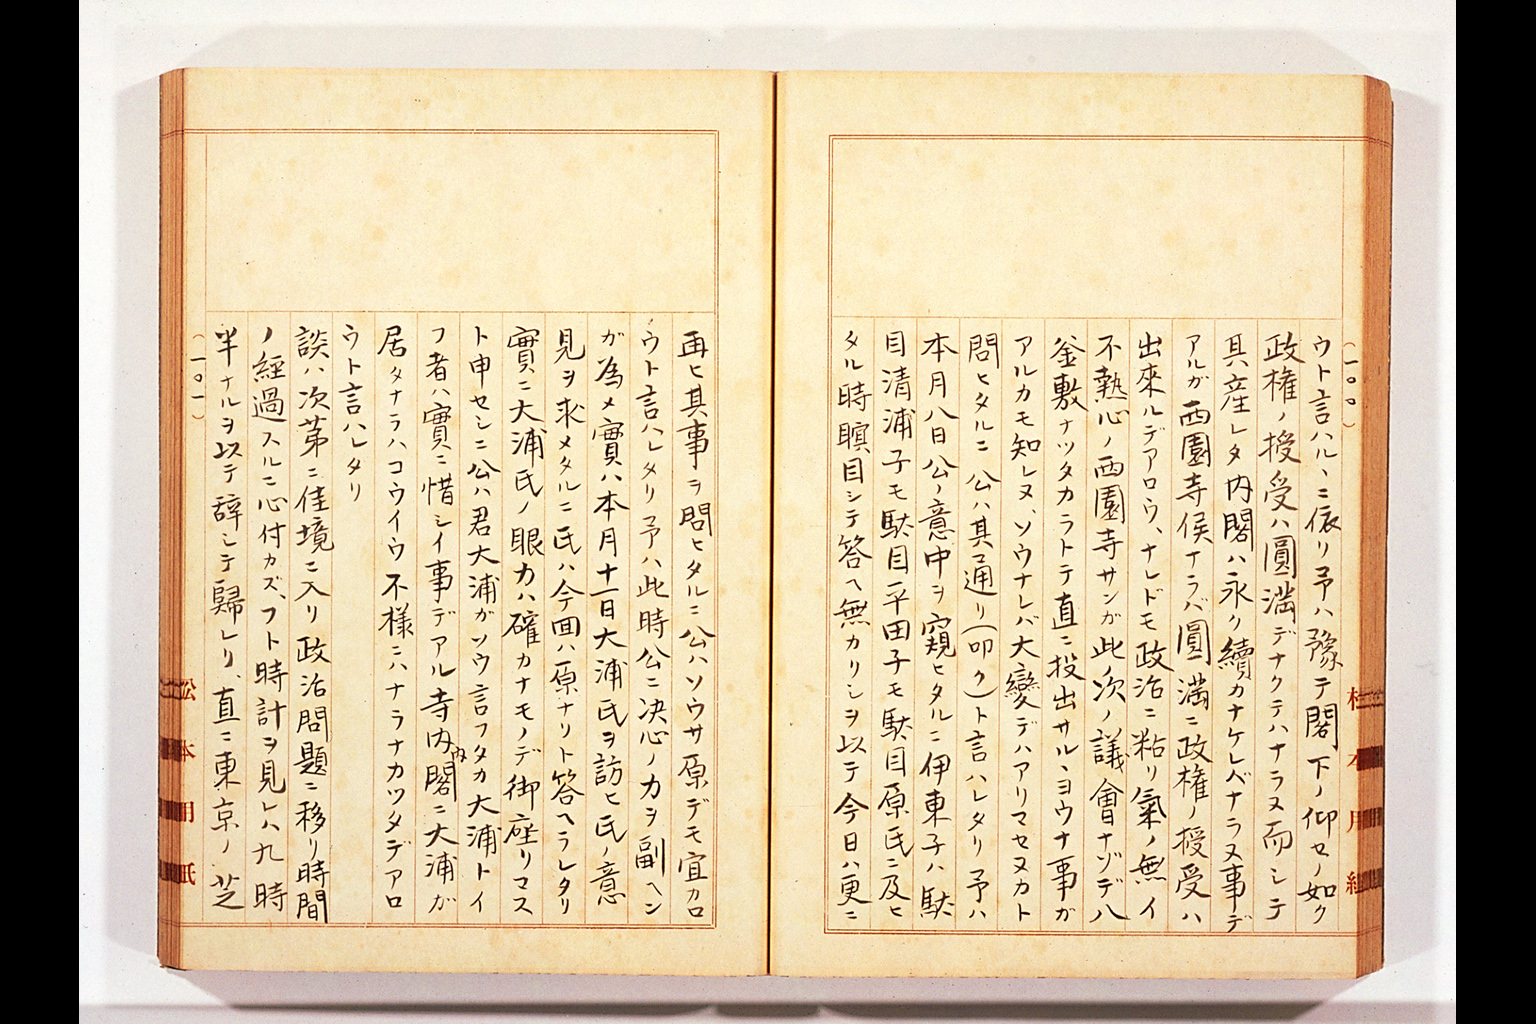 (一〇〇)
ウト言ハル、ニ依リ予ハ豫テ閣下ノ仰セノ如ク
政権ノ授受ハ圓満デナクテハナラヌ而シテ
其産レタ内閣ハ永ク續カナケレバナラヌ事デ
アルガ西園寺侯ナラバ圓満ニ政権ノ授受ハ
出來ルデアロウ、ナレドモ政治ニ粘リ氣ノ無イ
不熱心ノ西園寺サンガ此次ノ議會ナゾデ八
釜敷ナツタカラトテ直ニ投出サル、ヨウナ事ガ
アルカモ知レヌ、ソウナレバ大變デハアリマセヌカト
問ヒタルニ公ハ其通リ(叩ク)ト言ハレタリ予ハ
本月八日公ノ意中ヲ窺ヒタルニ伊東子ハ駄
目清浦子モ駄目平田子モ駄目原氏ニ及ヒ
タル時瞑目シテ答ヘ無カリシヲ以テ今日ハ更ニ
松本用紙
再ヒ其事ヲ問ヒタルニ公ハソウサ原デモ宜カロ
ウト言ハレタリ予ハ此時公ニ决心ノ力ヲ副ヘン
ガ為メ實ハ本月十一日大浦氏ヲ訪ヒ氏ノ意
見ヲ求メタルニ氏ハ今回ハ原ナリト答ヘラレタリ
實ニ大浦氏ノ眼力ハ確カナモノデ御座リマス
ト申セシニ公ハ君大浦ガソウ言フタカ大浦トイ
フ者ハ實ニ惜シイ事デアル寺内内閣ニ大浦ガ
居タナラハコウイウ不様ニハナラナカツタデアロ
ウト言ハレタリ
談ハ次第ニ佳境ニ入リ政治問題ニ移リ時間
ノ經過スルニ心付カズ、フト時計ヲ見レハ九時
半ナルヲ以テ辞シテ歸レリ、直ニ東京ノ芝
(一〇一)
松本用紙